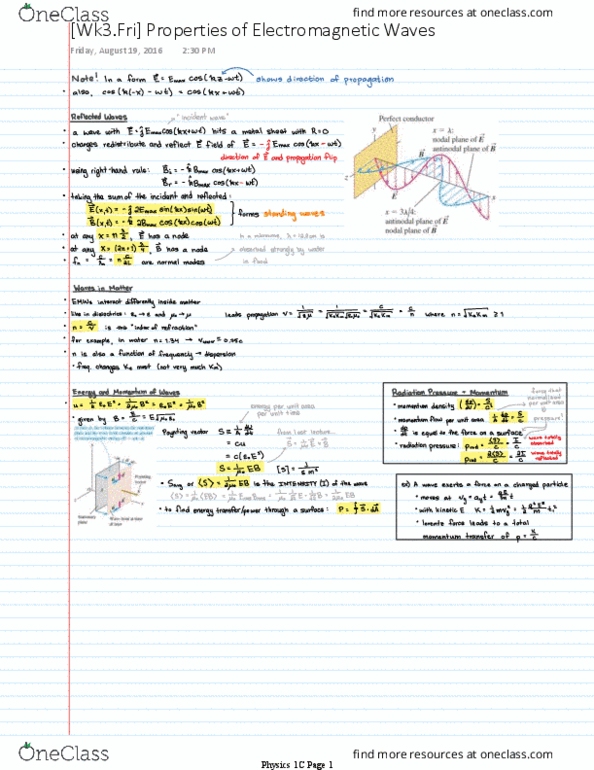 OneClass
find more resources at oneclass.com
[Wk3.Fri] Properties of Electromagnetic Waves
Friday, August 19, 2016 2:30 PM
Note! In a form E⃗ = Emax cos(kz - ωt) shows direction of propagation
• also, cos(k(-x) - ωt) = cos(kx + ωt)
Reflected Waves
"incident wave"
• a wave with E⃗ = ĵ Emax cos(kx+ωt) hits a metal sheet with R=0
• charges redistribute and reflect E⃗ field of E⃗ = -ĵ Emax cos(kx-ωt)
direction of E⃗ and propagation flip
• using right-hand rule: B⃗i = -k̂ Bmax cos(kx+ωt)
B⃗r = -k̂ Bmax cos(kx-ωt)
• taking the sum of the incident and reflected:
E⃗(x,t) = -ĵ 2Emax sin(kx) sin(ωt)
B⃗(x,t) = -k̂ 2Bmax cos(kx) cos(ωt)
forms standing waves
• at any x = n λ/2, E⃗ has a node
• at any x = (2n+1) λ/4, B⃗ has a node
in microwave,
absorbed strongly by water
in food
• fn = c/λn = n c/2L are normal modes
Perfect conductor
y
x = λ:
nodal plane of E⃗
antinodal plane of B⃗
B⃗
z
E⃗
x
x = 3λ/4:
antinodal plane of E⃗
nodal plane of B⃗
Waves in Matter
• EMWs interact differently inside matter
• like in dielectrics: ε₀ → ε and μ₀ → μ leads propagation v = 1/√εμ = c/n where n = √KeKm ≥ 1
• n = c/v is the "index of refraction"
• for example, in water n = 1.34 → vwater = 0.75c
• n is also a function of frequency → dispersion
• freq. changes Ke most (not very much Km)
Energy and Momentum of Waves
• u = ½ε₀E² + 1/2μ₀ B² = ε₀E² = 1/μ₀ B²
• given by B = E/c = E√μ₀ε₀
energy per unit area
per unit time
Poynting vector S = 1/A dU/dt
= cu
= c(ε₀E²)
S = 1/μ₀ EB
from last lecture...
S⃗ = 1/μ₀ E⃗ × B⃗
• Savg or ⟨S⟩ = 1/2μ₀ EB is the INTENSITY (I) of the wave
• to find energy transfer/power through a surface: P = ∮ S⃗ · dA⃗
Stationary
plane
Radiation Pressure = Momentum
• momentum density
• momentum flow per unit area 1/A dp/dt = S/c
• dp/dt is equal to the force on a surface
• radiation pressure: prad = ⟨S⟩/c = I/c
prad = 2⟨S⟩/c = 2I/c
force that
normalized
per unit area
is
pressure!
wave totally
absorbed
wave totally
reflected
ex) A wave exerts a force on a charged particle
• moves at
• with kinetic E
• lorentz force leads to a total
momentum transfer of
OneClass
find more resources at oneclass.com
Physics 1C Page 1